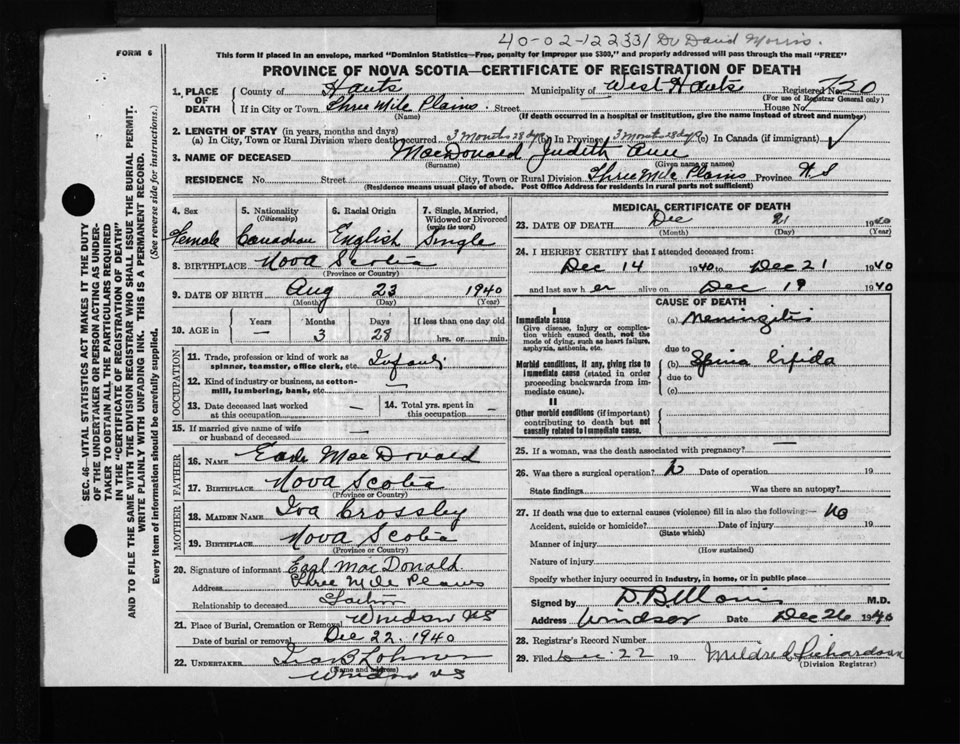 40-02-122331 Dr David Morris.
FORM 6
This form if placed in an envelope, marked "Dominion Statistics—Free, penalty for improper use $300," and properly addressed will pass through the mail "FREE"
PROVINCE OF NOVA SCOTIA—CERTIFICATE OF REGISTRATION OF DEATH
1. PLACE OF DEATH
County of Hants Municipality of West Hants Registered No. 720
(For use of Registrar General only)
If in City or Town Three Mile Plains. Street House No.
(Name) (If death occurred in a hospital or institution, give the name instead of street and number)
2. LENGTH OF STAY (in years, months and days)
(a) In City, Town or Rural Division where death occurred 3 months 28 dys (b) In Province 3 months 28 dys (c) In Canada (if immigrant)
3. NAME OF DECEASED MacDonald Judith Ann
(Surname) (Given name or names)
RESIDENCE No. Street City, Town or Rural Division Three Mile Plains Province N.S
(Residence means usual place of abode. Post Office Address for residents in rural parts not sufficient)
4. Sex Female
5. Nationality (Citizenship) Canadian
6. Racial Origin English
7. Single, Married, Widowed or Divorced (write the word) Single
8. BIRTHPLACE Nova Scotia
(Province or Country)
9. DATE OF BIRTH Aug 23 1940
(Month) (Day) (Year)
10. AGE in Years Months Days If less than one day old
— 3 28 hrs. or min.
OCCUPATION
11. Trade, profession or kind of work as spinner, teamster, office clerk, etc. Infant
12. Kind of industry or business, as cotton-mill, lumbering, bank, etc. —
13. Date deceased last worked at this occupation —
14. Total yrs. spent in this occupation —
15. If married give name of wife or husband of deceased —
FATHER
16. NAME Earle MacDonald
17. BIRTHPLACE Nova Scotia
(Province or Country)
MOTHER
18. MAIDEN NAME Iva Crossley
19. BIRTHPLACE Nova Scotia
(Province or Country)
20. Signature of informant Earl MacDonald
Address Three Mile Plains
Relationship to deceased Father
21. Place of Burial, Cremation or Removal Windsor NS
Date of burial or removal Dec 22. 1940
22. UNDERTAKER
(Name and address)
Windsor NS
MEDICAL CERTIFICATE OF DEATH
23. DATE OF DEATH Dec 21 1940
(Month) (Day) (Year)
24. I HEREBY CERTIFY that I attended deceased from:
Dec 14 1940 to Dec 21 1940
and last saw her alive on Dec 19 1940
CAUSE OF DEATH
I
Immediate cause (a) Meningitis
Give disease, injury or complication which caused death, not the mode of dying, such as heart failure, asphyxia, asthenia, etc.
due to
Morbid conditions, if any, giving rise to immediate cause (stated in order proceeding backwards from immediate cause).
(b) Spina bifida
due to
(c)
II
Other morbid conditions (if important) contributing to death but not causally related to immediate cause.
25. If a woman, was the death associated with pregnancy?
26. Was there a surgical operation? Date of operation 19
State findings Was there an autopsy?
27. If death was due to external causes (violence) fill in also the following:— No
Accident, suicide or homicide? Date of injury 19
(State which)
Manner of injury
(How sustained)
Nature of injury
Specify whether injury occurred in industry, in home, or in public place
Signed by D. B. Morris M.D.
Address Windsor Date Dec 26 1940
28. Registrar's Record Number
29. Filed Dec. 22 19 Mildred Richardson
(Division Registrar)
SEC. 46—VITAL STATISTICS ACT MAKES IT THE DUTY
OF THE UNDERTAKER OR PERSON ACTING AS UNDER-
TAKER TO OBTAIN ALL THE PARTICULARS REQUIRED
IN THE "CERTIFICATE OF REGISTRATION OF DEATH"
AND TO FILE THE SAME WITH THE DIVISION REGISTRAR WHO SHALL ISSUE THE BURIAL PERMIT.
WRITE PLAINLY WITH UNFADING INK. THIS IS A PERMANENT RECORD.
Every item of information should be carefully supplied. (See reverse side for instructions.)